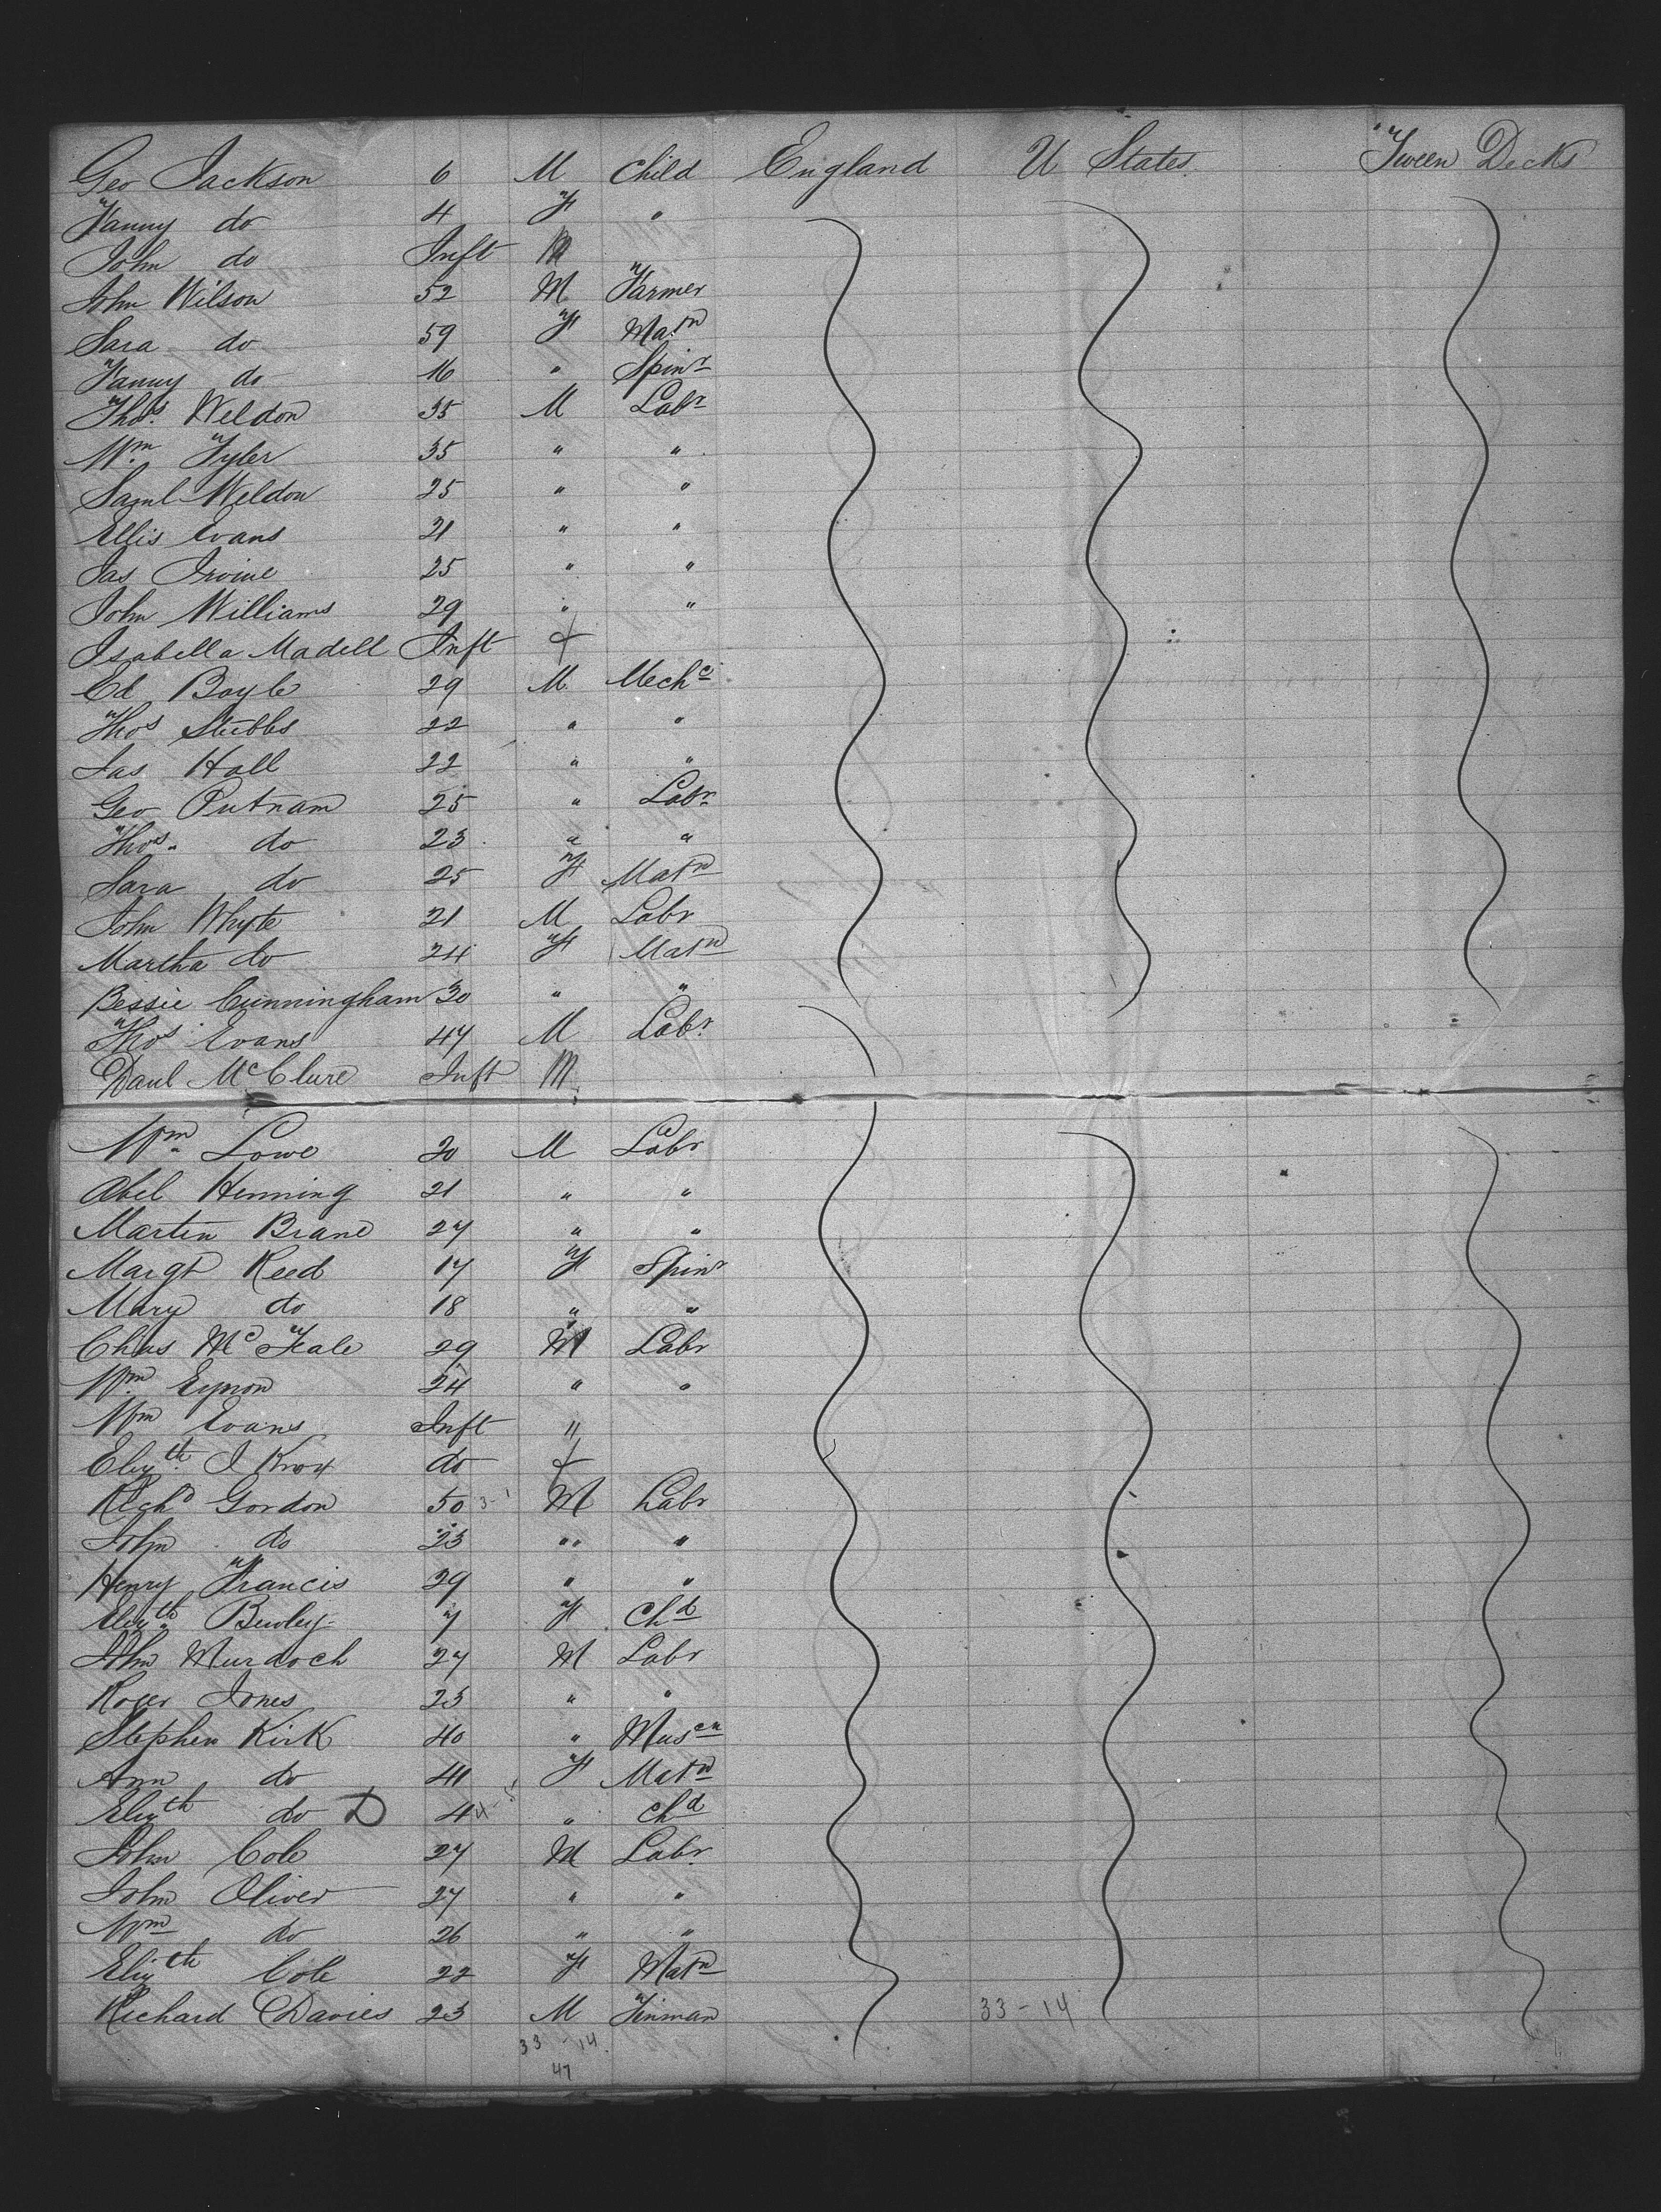 Geo Jackson 6 M Child England U States 'Tween Decks
Fanny do 4 F "
John do Inft M
John Wilson 52 M Farmer
Sara do 59 F Matn
Fanny do 16 " Spinr
Thos. Weldon 35 M Labr
Wm Tyler 35 " "
Saml Weldon 25 " "
Ellis Evans 21 " "
Jas Irvine 25 " "
John Williams 29 " "
Isabella Madell Inft f
Ed Boyle 29 M Mechc
Thos Stubbs 22 " "
Jas Hall 22 " "
Geo Putnam 25 " Labr
Thos. do 23 " "
Sara do 25 F Matn
John Whyte 21 M Labr
Martha do 24 F Matn
Bessie Cunningham 30 " "
Thos Evans 47 M Labr
Danl McClure Inft M
Wm Lowe 20 M Labr
Abel Henning 21 " "
Martin Brane 27 " "
Margt Reed 17 F Spinr
Mary do 18 " "
Chas Mc Fale 29 M Labr
Wm 24 " "
Wm Evans Inft "
Elizth. J Knox do f
Richd Gordon 50 3-1 M Labr
John do 23 " "
Henry Francis 29 " "
Elizth 7 F Chd
John Murdoch 27 M Labr
Roger Jones 23 " "
Stephen Kirk 40 " Muscn
Ann do 41 F Matn
Elizth do D 4 4-5 " Chd
John Cole 27 M Labr
John Oliver 27 " "
Wm do 26 " "
Elizth Cole 22 F Matn
Richard Davies 23 M Tinman 33-14
33-14
47